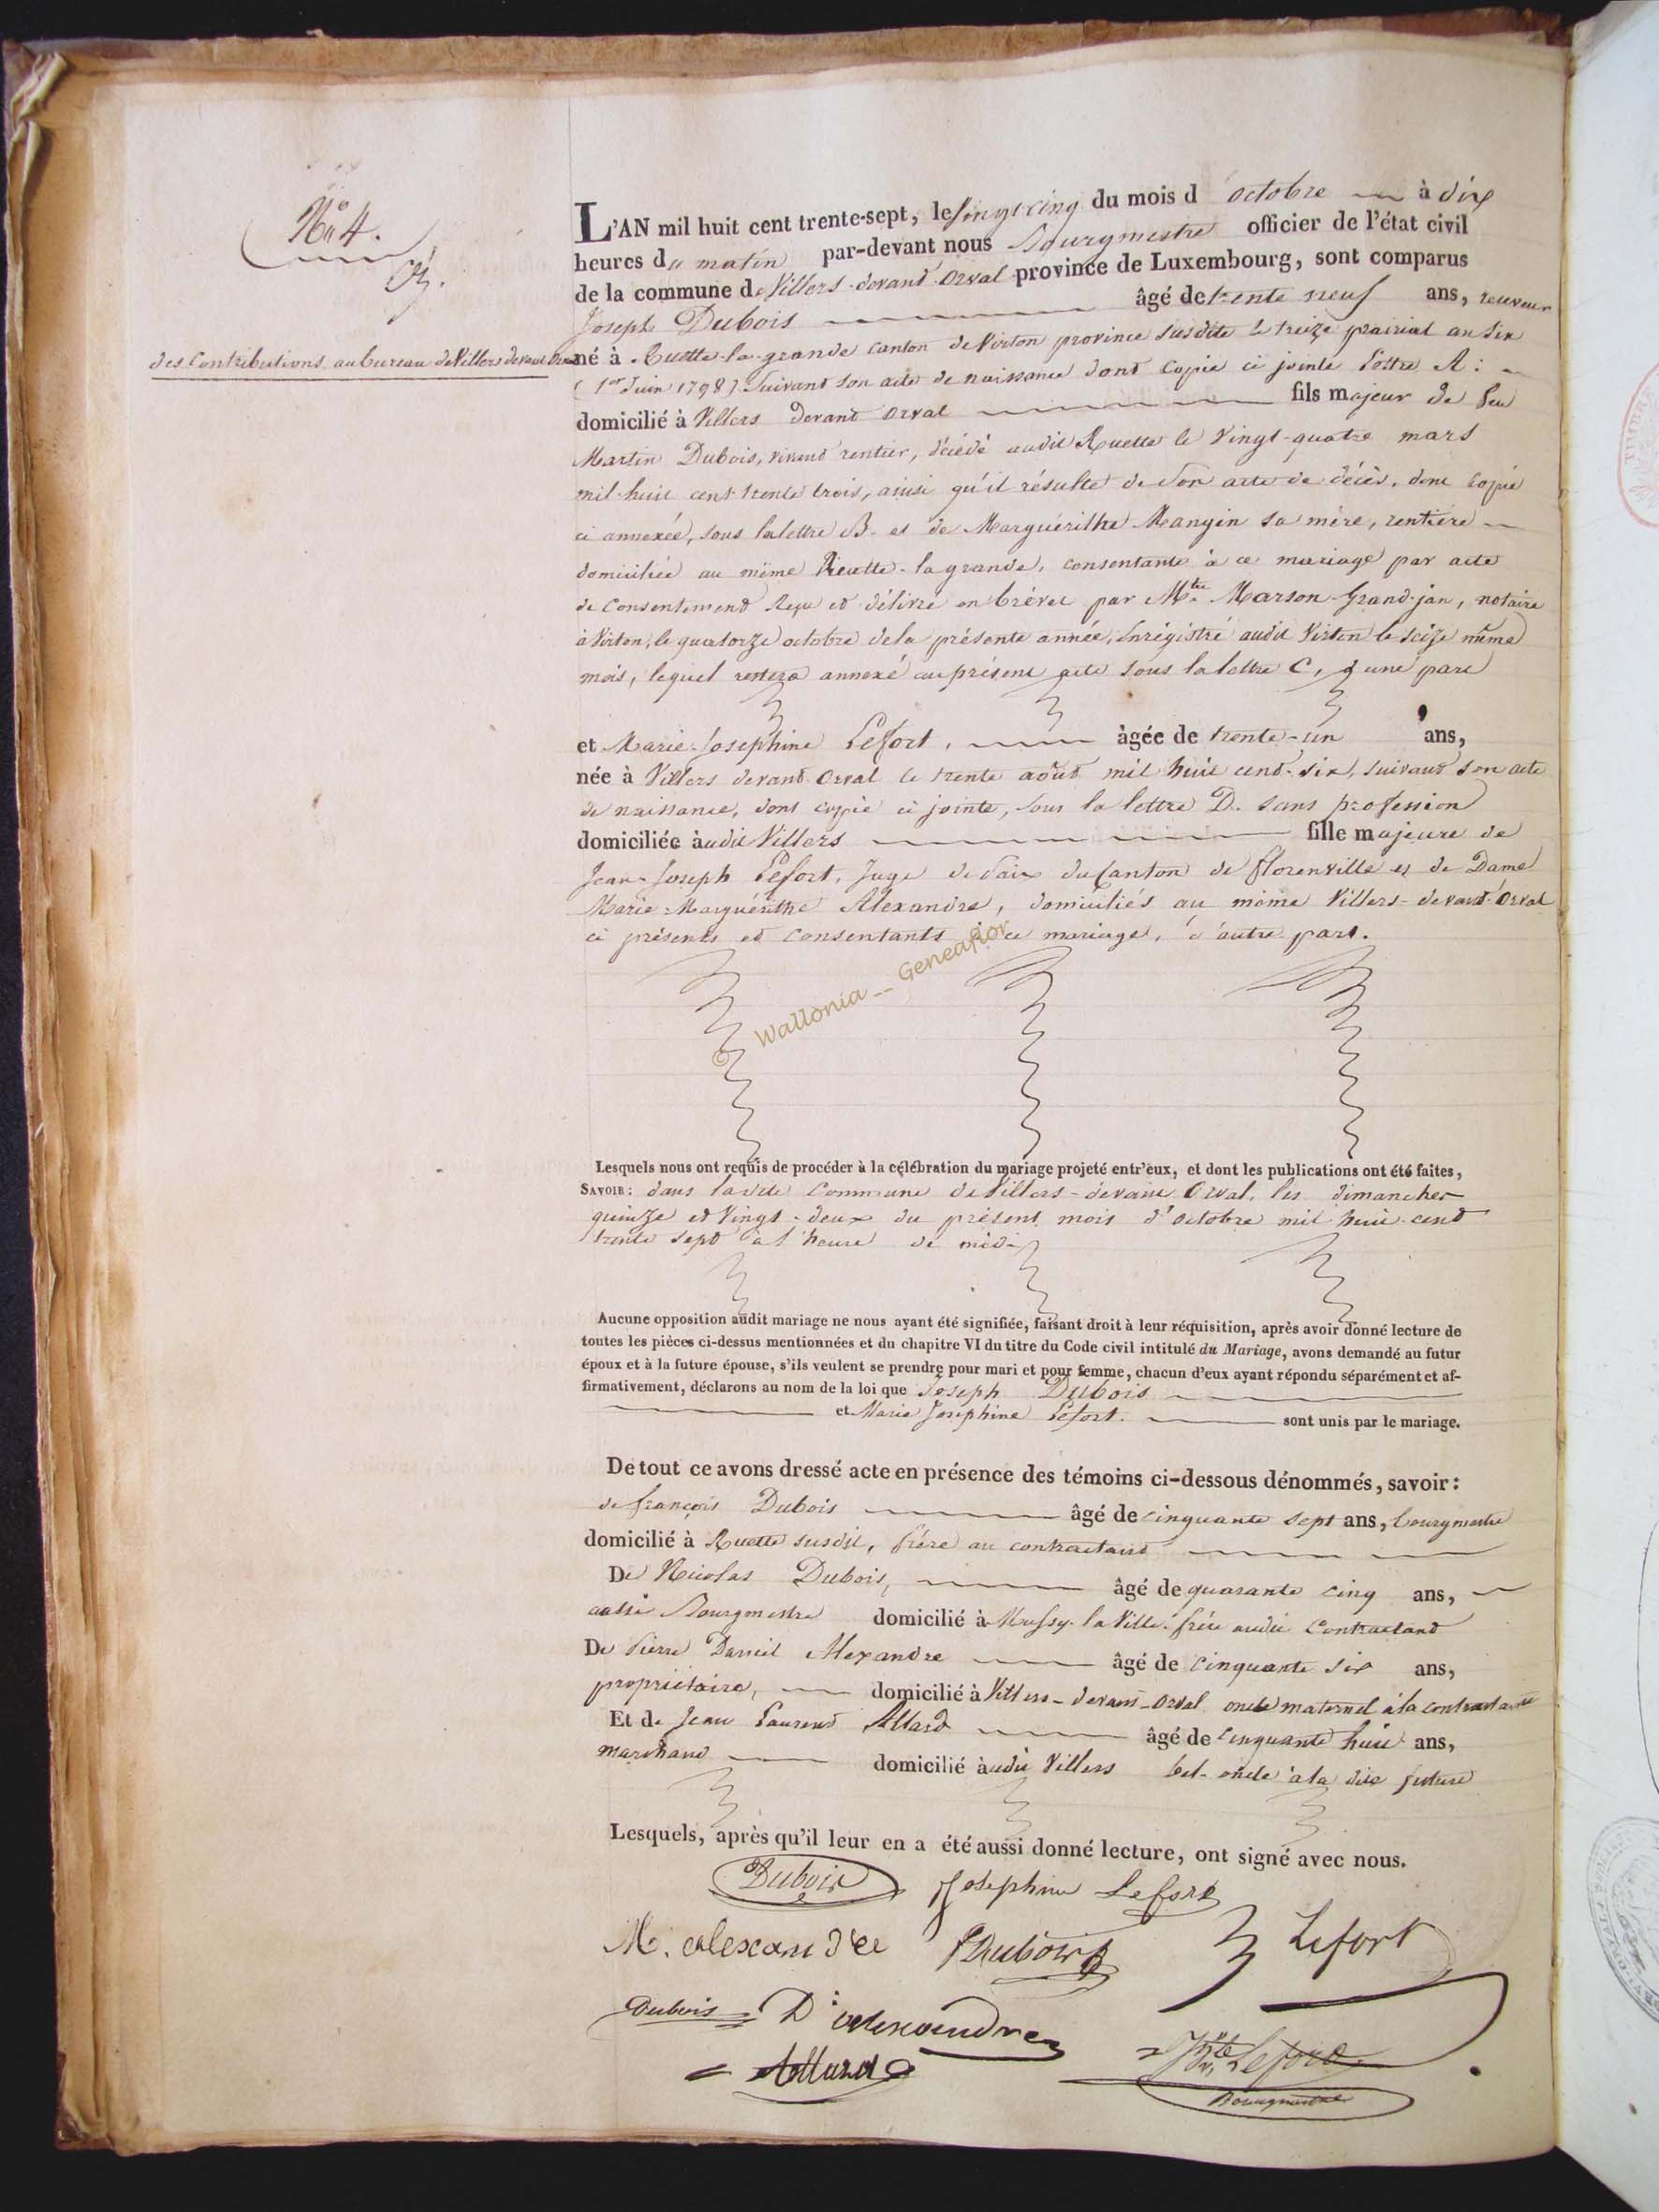 N° 4.
L'AN mil huit cent trente-sept, le vingt cinq du mois d'octobre à dix
heures du matin par-devant nous Bourgmestre officier de l'état civil
de la commune de Villers-devant-Orval province de Luxembourg, sont comparus
Joseph Dubois âgé de trente neuf ans, receveur
des Contributions au bureau de Villers devant Orval
né à Ruette-la-grande canton de Virton province susdite le treize prairial an six
(1er Juin 1798) suivant son acte de naissance dont copie ci jointe lettre A:
domicilié à Villers devant Orval fils majeur de feu
Martin Dubois, vivant rentier, décédé audit Ruette le vingt-quatre mars
mil-huit cent trente trois, ainsi qu'il résulte de son acte de décès, dont copie
ci annexée, sous la lettre B. et de Marguérithe Mangin sa mère, rentière
domiciliée au même Ruette-la grande, consentante à ce mariage par acte
de consentement reçu et délivré en brévet par Mtre Marson Grand-jan, notaire
à Virton, le quatorze octobre de la présente année, Enrégistré audit Virton le seize même
mois, lequel restera annexé au présent acte sous la lettre C, d'une part
et Marie-Josephine Lefort, âgée de trente-un ans,
née à Villers devant Orval le trente août mil huit cent-six, suivant son acte
de naissance, dont copie ci jointe, sous la lettre D. sans profession
domiciliée audit Villers fille majeure de
Jean-Joseph Lefort, Juge de Paix du Canton de Florenville et de Dame
Marie-Marguérithe Alexandre, domiciliés au même Villers-devant-Orval
ci présents et consentants à ce mariage, d'autre part.
© Wallonia_Geneaflor
Lesquels nous ont requis de procéder à la célébration du mariage projeté entr'eux, et dont les publications ont été faites,
SAVOIR: dans ladite Commune de Villers-devant Orval, les dimanches
quinze et Vingt-deux du présent mois d'octobre mil huit-cent
trente sept à l'heure de midi
Aucune opposition audit mariage ne nous ayant été signifiée, faisant droit à leur réquisition, après avoir donné lecture de
toutes les pièces ci-dessus mentionnées et du chapitre VI du titre du Code civil intitulé du Mariage, avons demandé au futur
époux et à la future épouse, s'ils veulent se prendre pour mari et pour femme, chacun d'eux ayant répondu séparément et af-
firmativement, déclarons au nom de la loi que Joseph Dubois
et Marie Josephine Lefort. sont unis par le mariage.
De tout ce avons dressé acte en présence des témoins ci-dessous dénommés, savoir:
de françois Dubois âgé de cinquante sept ans, bourgmestre
domicilié à Ruette susdit, frère au contractant
De Nicolas Dubois, âgé de quarante cinq ans,
aussi Bourgmestre domicilié à Mussy-la Ville. frère audit Contractant
De Pierre Daniel Alexandre âgé de cinquante six ans,
propriétaire, domicilié à Villers-devant-Orval oncle maternel à la contractante
Et de Jean Laurent Allard âgé de cinquante huit ans,
marchand domicilié audit Villers bel-oncle à la dite future
Lesquels, après qu'il leur en a été aussi donné lecture, ont signé avec nous.
Dubois Josephine Lefort
M. alexandre Dubois Lefort
Dubois D alexandre
Allard Lefort
Bourgmestre